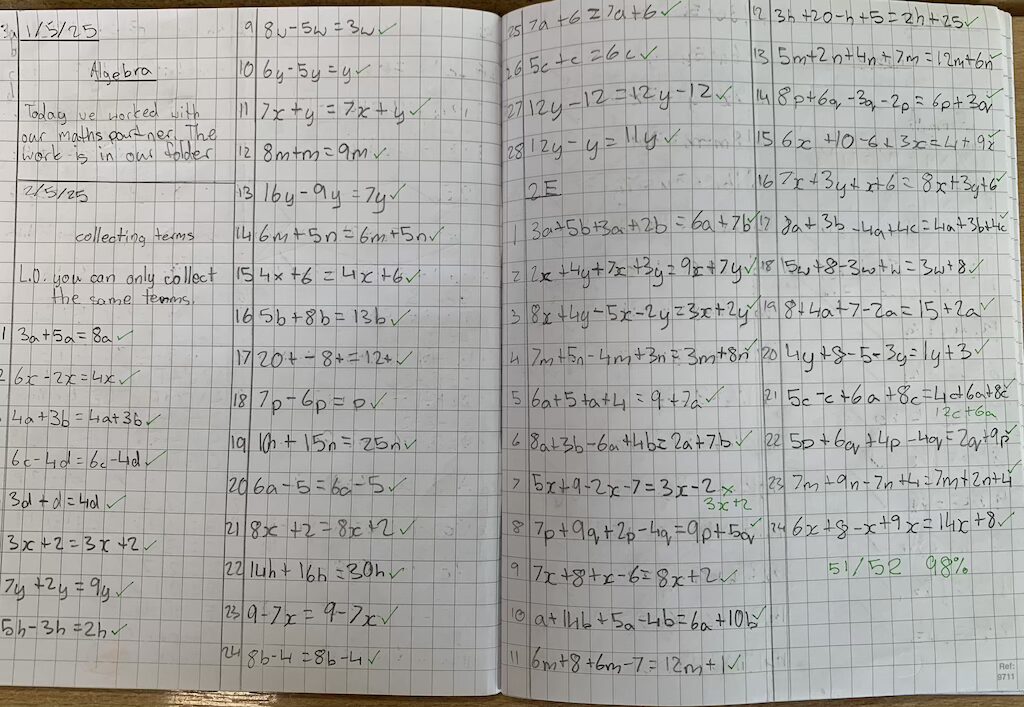 1/5/25
Algebra
Today we worked with
our maths partner. The
work is in our folder
2/5/25
collecting terms
L.O. you can only collect
the same terms.
1 3a+5a=8a ✓
2 6x-2x=4x ✓
4a+3b=4a+3b ✓
6c-4d=6c-4d ✓
3d+d=4d ✓
3x+2=3x+2 ✓
7y+2y=9y ✓
5h-3h=2h ✓
9 8w-5w=3w ✓
10 6y-5y=y ✓
11 7x+y=7x+y ✓
12 8m+m=9m ✓
13 16y-9y=7y ✓
14 6m+5n=6m+5n ✓
15 4x+6=4x+6 ✓
16 5b+8b=13b ✓
17 20t-8t=12t ✓
18 7p-6p=p ✓
19 10n+15n=25n ✓
20 6a-5=6a-5 ✓
21 8x+2=8x+2 ✓
22 14h+16h=30h ✓
23 9-7x=9-7x ✓
24 8b-4=8b-4 ✓
25 7a+6=7a+6 ✓
26 5c+c=6c ✓
27 12y-12=12y-12 ✓
28 12y-y=11y ✓
2E
1 3a+5b+3a+2b=6a+7b ✓
2 2x+4y+7x+3y=9x+7y ✓
3 8x+4y-5x-2y=3x+2y ✓
4 7m+5n-4m+3n=3m+8n ✓
5 6a+5+a+4=9+7a ✓
6 8a+3b-6a+4b=2a+7b ✓
7 5x+9-2x-7=3x-2 ×
3x+2
8 7p+9q+2p-4q=9p+5q ✓
9 7x+8+x-6=8x+2 ✓
10 a+14b+5a-4b=6a+10b ✓
11 6m+8+6m-7=12m+1 ✓
12 3h+20-h+5=2h+25 ✓
13 5m+2n+4n+7m=12m+6n ✓
14 8p+6q-3q-2p=6p+3q ✓
15 6x+10-6+3x=4+9x ✓
16 7x+3y+x+6=8x+3y+6 ✓
17 8a+3b-4a+4c=4a+3b+4c ✓
18 5w+8-3w+w=3w+8 ✓
19 8+4a+7-2a=15+2a ✓
20 4y+8-5-3y=1y+3 ✓
21 5c-c+6a+8c=4c+6a+8c ✓
12c+6a
22 5p+6q+4p-4q=2q+9p ✓
23 7m+9n-7n+4=7m+2n+4 ✓
24 6x+8-x+9x=14x+8 ✓
51/52 98%
Ref:
9711